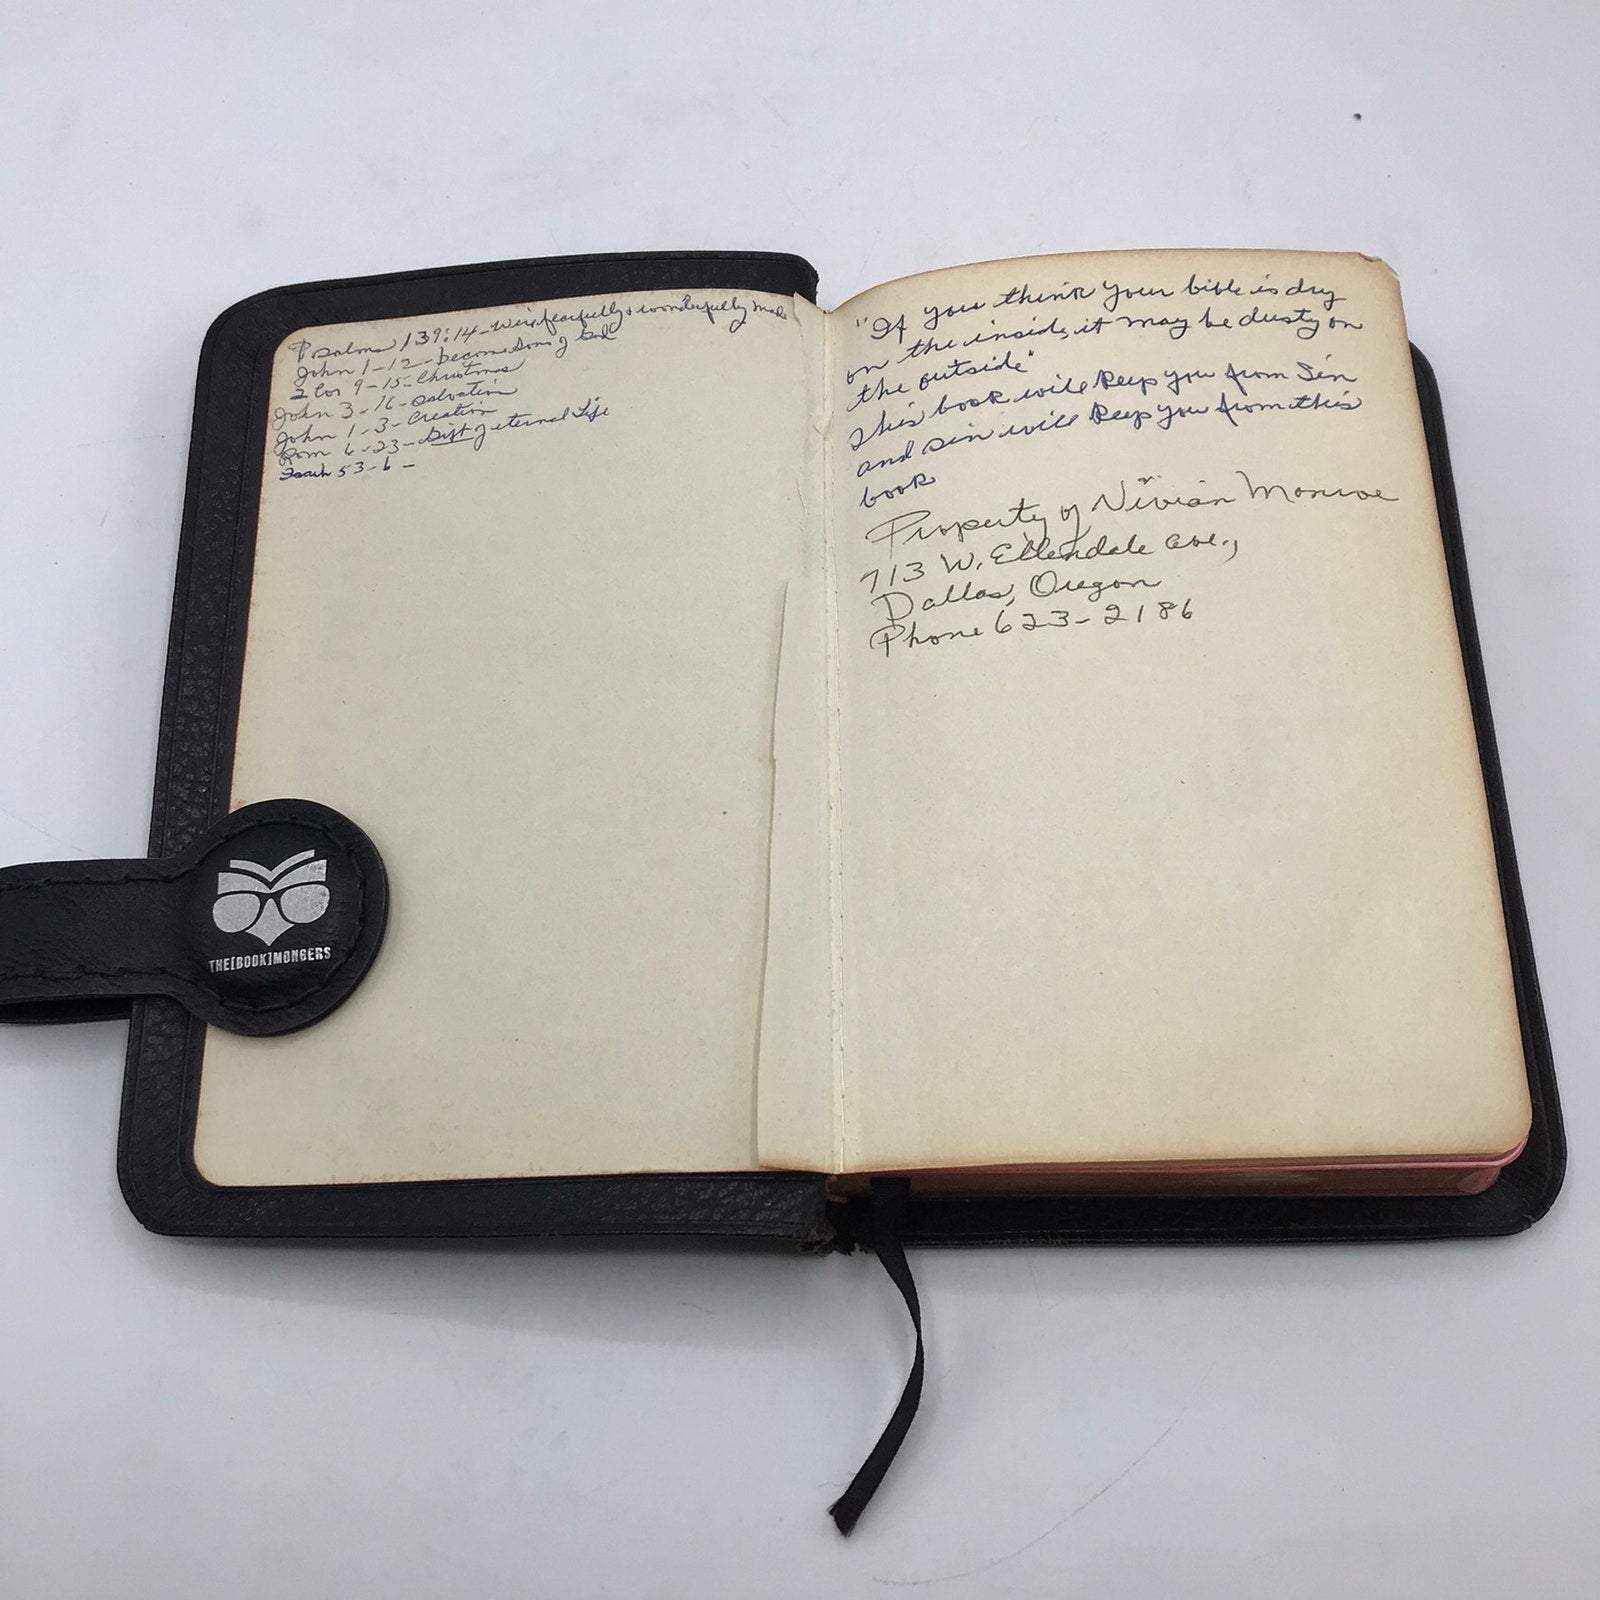 Psalms 139:14 - We're fearfully & wonderfully made
John 1-12 - become Sons of God
2 Cor 9-15 - Christmas
John 3-16 - salvation
John 1-3 - Creation
Rom 6-23 - Gift of eternal Life
Isaih 53-6 -
THE[BOOK]MONGERS
"If you think your bible is dry
on the inside, it may be dusty on
the outside"
This book will keep you from Sin
and sin will keep you from this
book
Property of Nivian Monroe
713 W. Ellendale Ave.,
Dallas, Oregon
Phone 623-2186